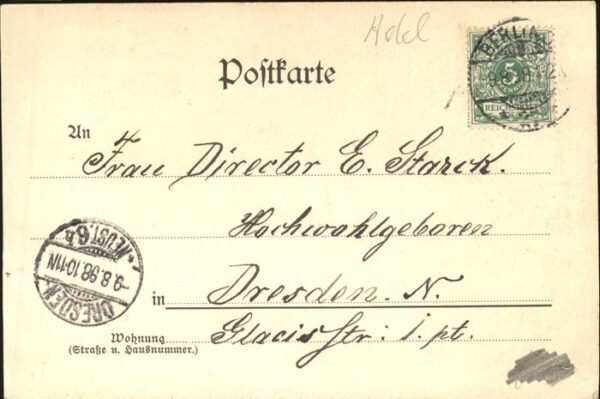 Adel
Postkarte
BERLIN
5
REICHSPOST
An
Frau Director E. Starck.
Hochwohlgeboren
in Dresden. N.
Wohnung Glacisstr: 1. pt.
(Straße u. Hausnummer.)
DRESDEN
-9.8.98.10-11N
NEUST.6.b